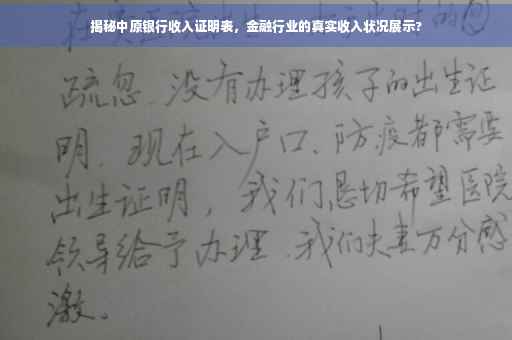 揭秘中原银行收入证明表，金融行业的真实收入状况展示?
疏忽、没有办理孩子的出生证
明、现在入户口、防疫都需要
出生证明，我们恳切希望医院
领导给予办理、我们夫妻万分感
激。